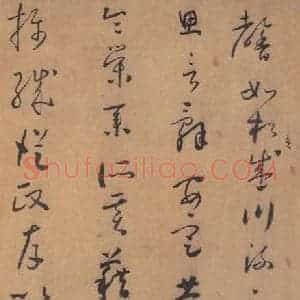 馨如松盛川流
思言辭安定篤
令榮業所基藉
攝職從政存以
Shufaziliao.COM